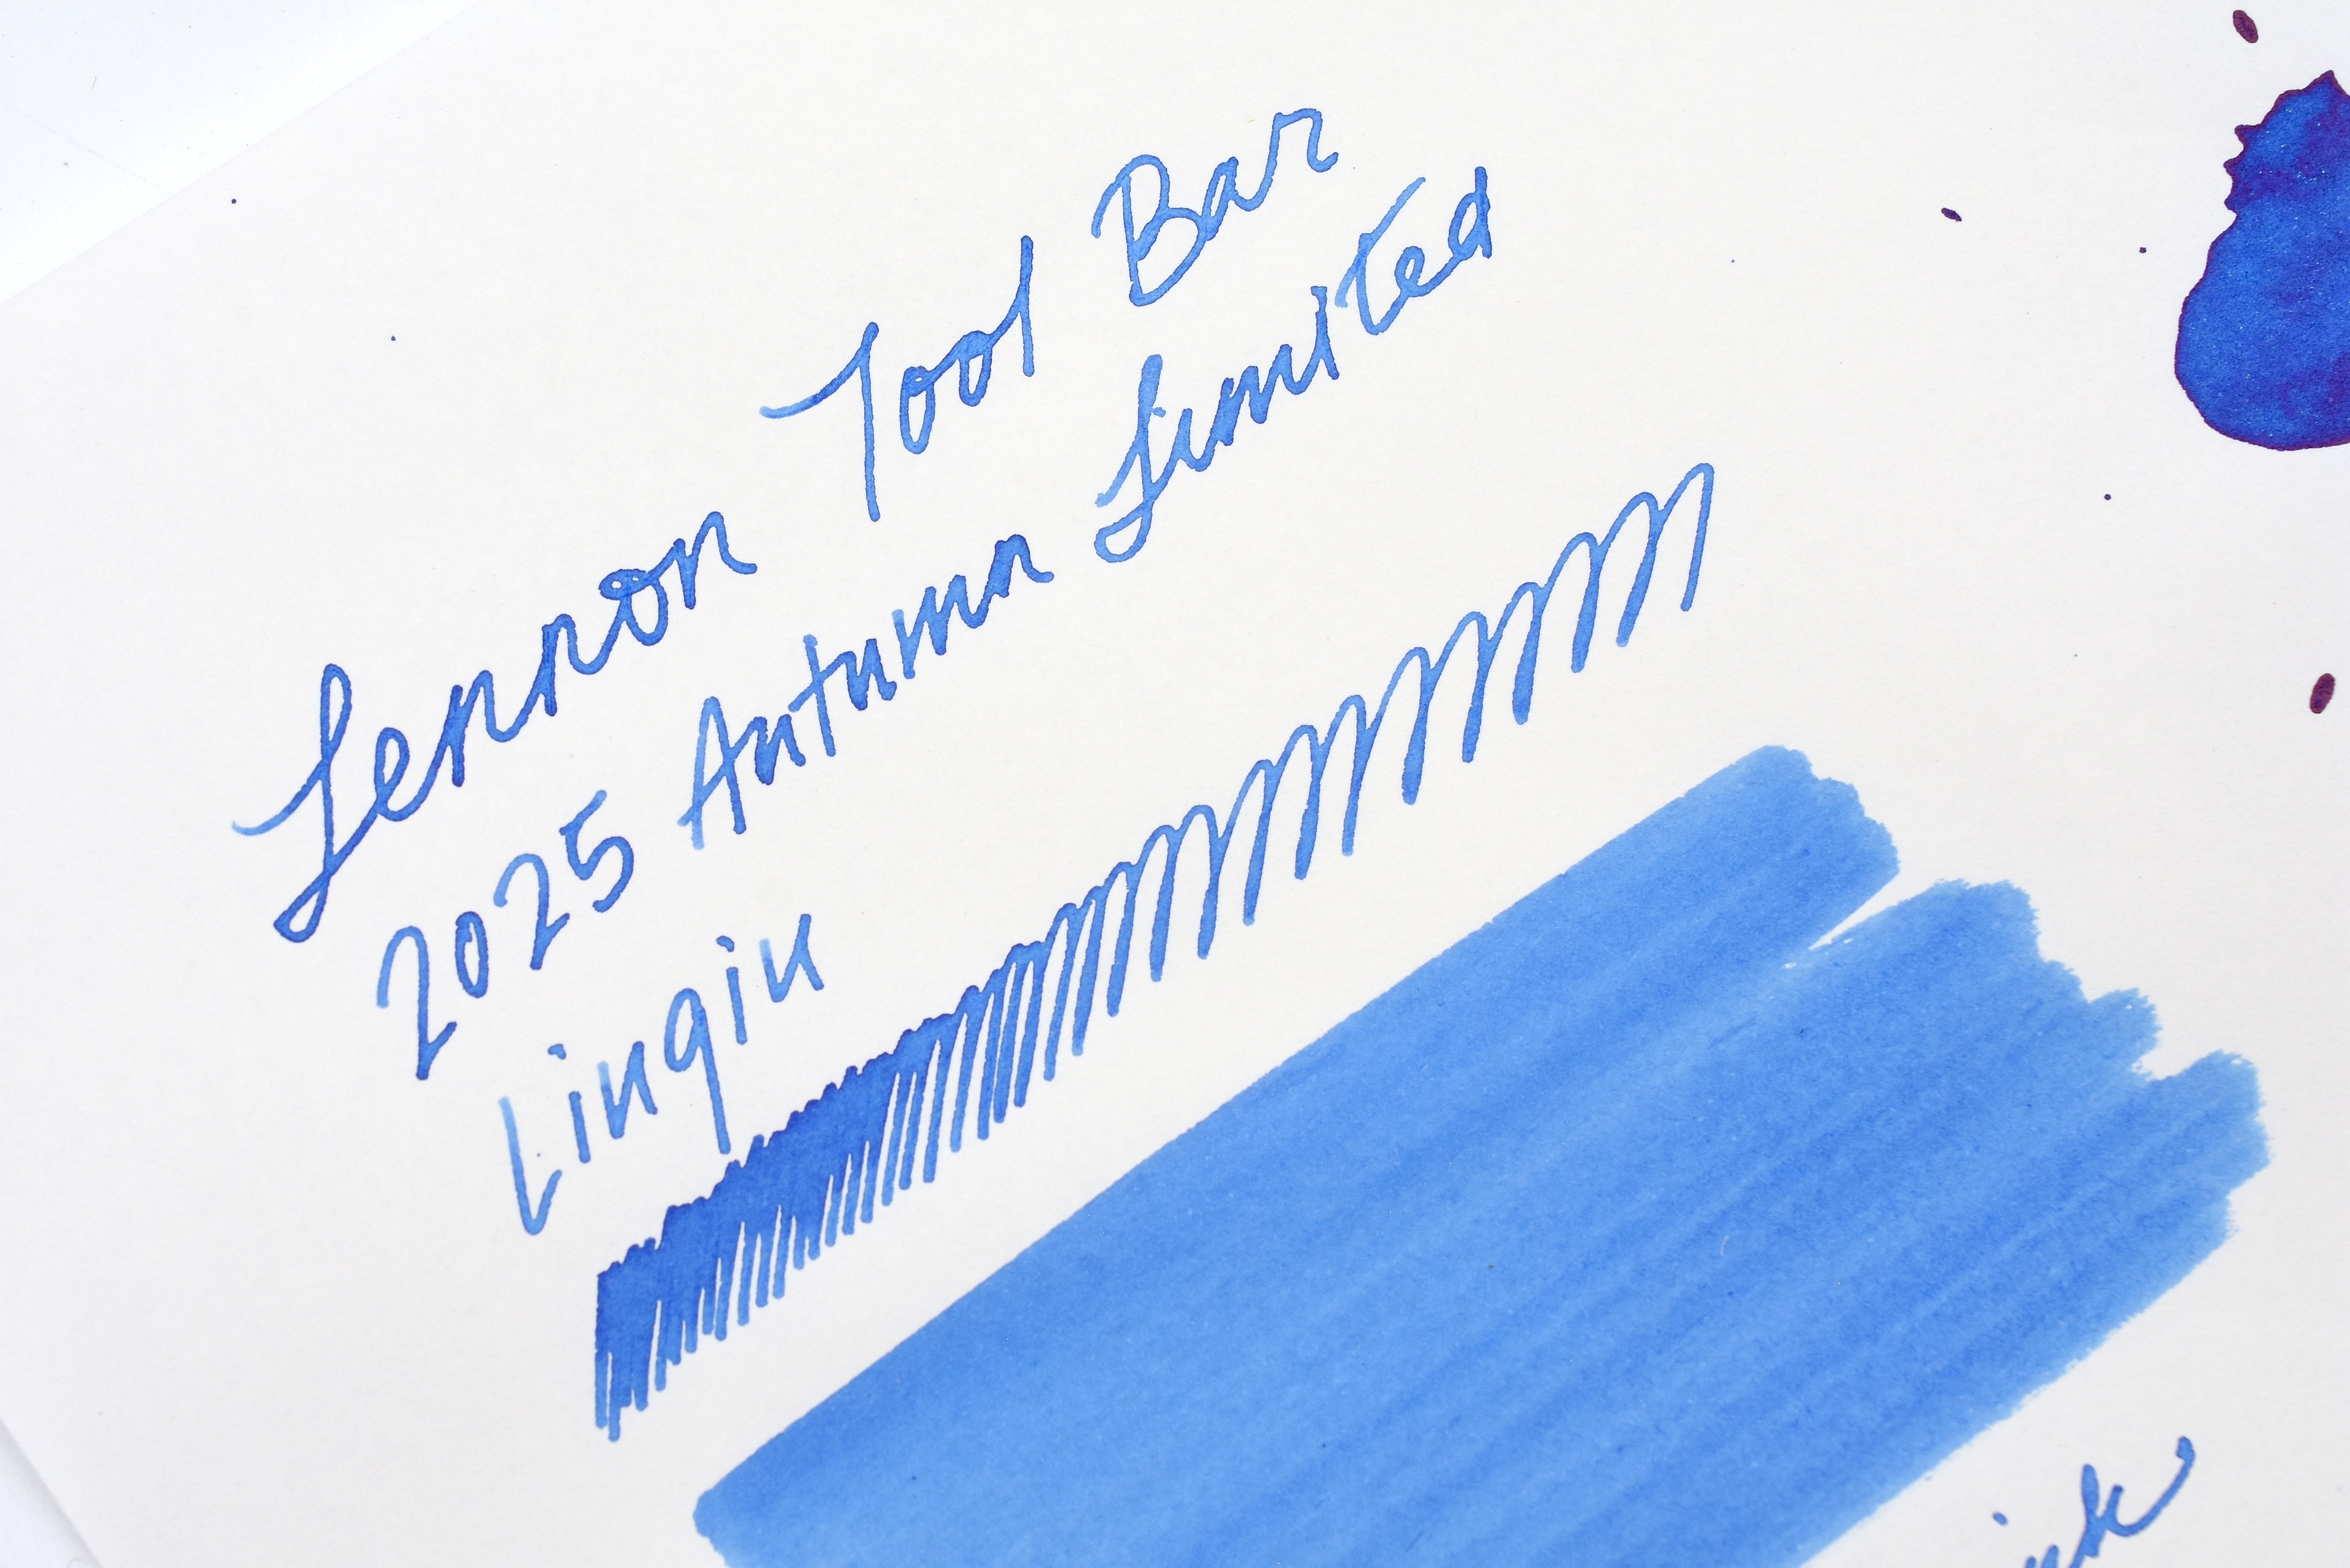 Lennon Tool Bar
2025 Autumn Limited
Lingiu